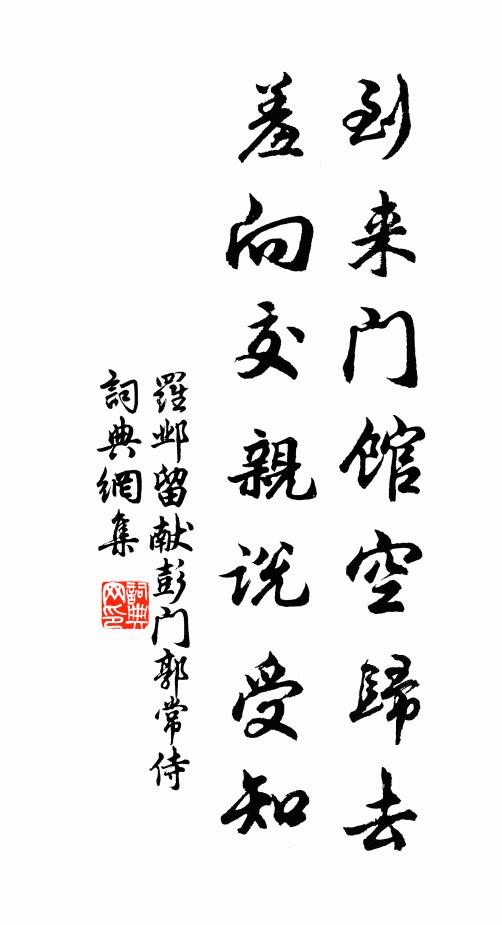 到来门馆空歸去
羞向交親说受知
羅邺留献彭门郭常侍
詞典網集
詞典网印